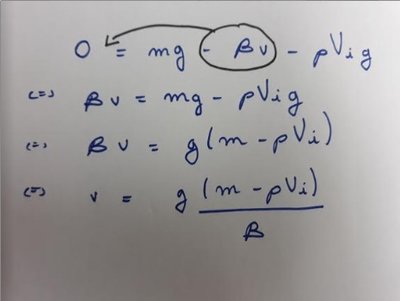 0 = mg - βv - ρVig
(=) βv = mg - ρVig
(=) βv = g(m - ρVi)
(=) v = g (m - ρVi)
β